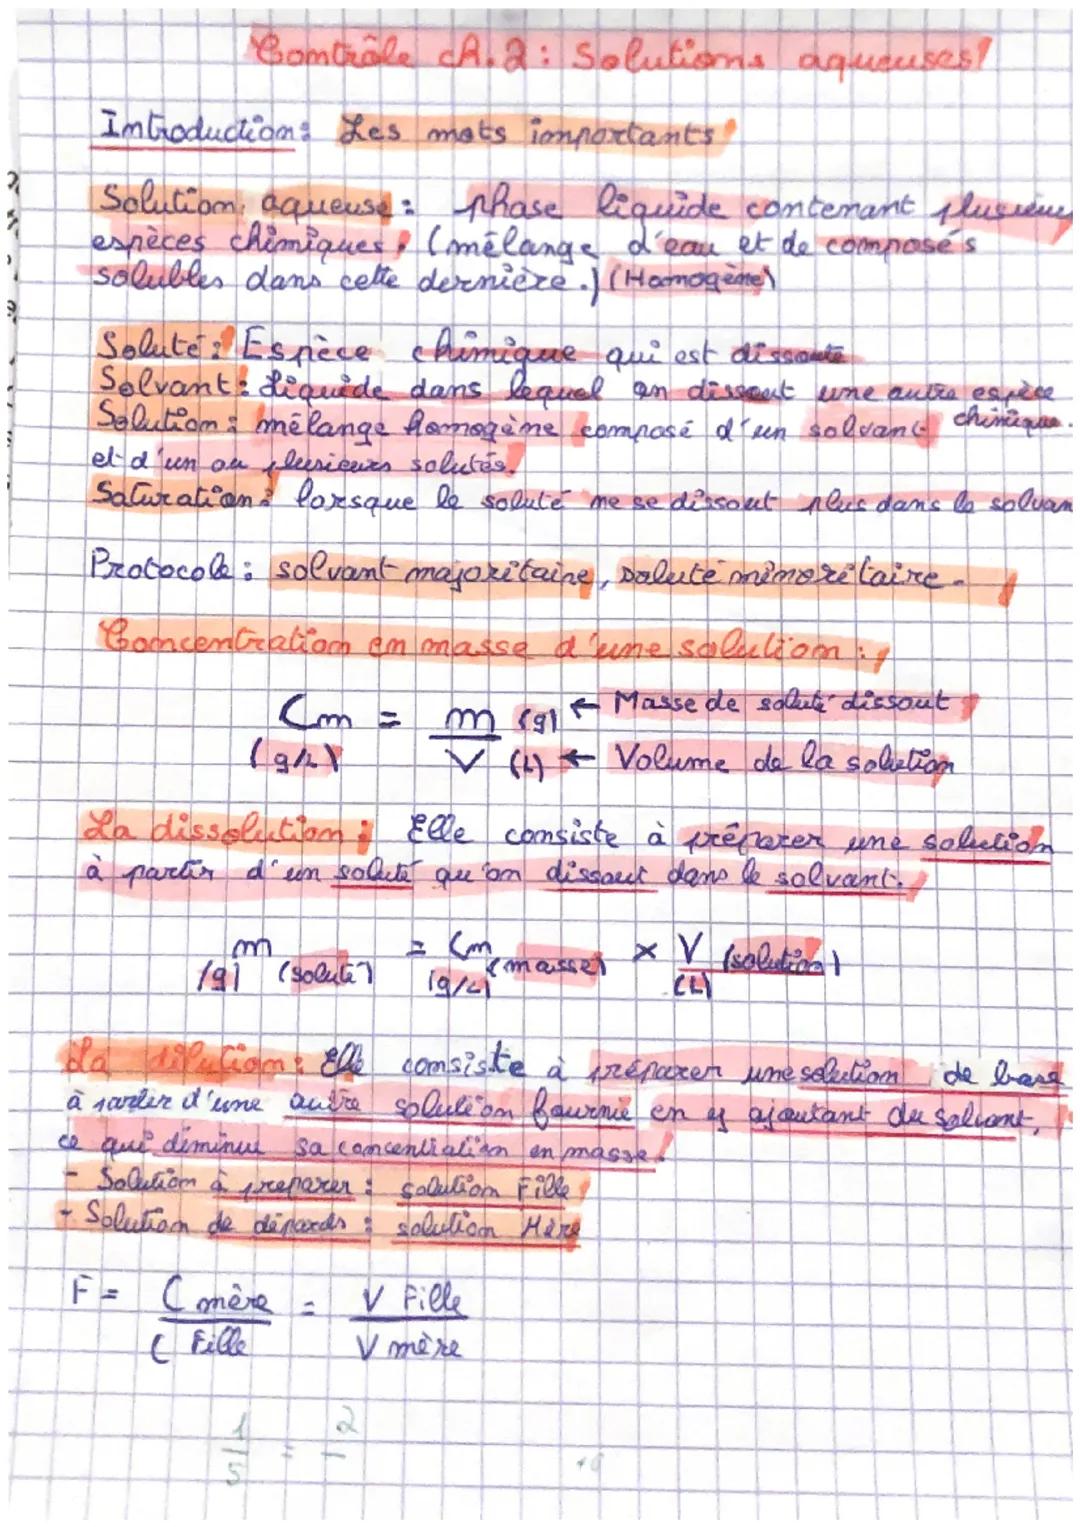 Contrôle ch.2 : Solutions aqueuses
Introduction : Les mots importants
Solution aqueuse : phase liquide contenant plusieurs
espèces chimiques. (mélange d'eau et de composés
solubles dans cette dernière.) (Homogène)
Soluté : Espèce chimique qui est dissoute
Solvant : Liquide dans lequel on dissout une autre espèce
chimique.
Solution : mélange homogène composé d'un solvant
et d'un ou plusieurs solutés.
Saturation : lorsque le soluté ne se dissout plus dans le solvan
Protocole : solvant majoritaire, soluté minoritaire.
Concentration en masse d'une solution :
Cm = m (g) ← Masse de soluté dissout
(g/L) V (L) ← Volume de la solution
La dissolution : Elle consiste à préparer une solution
à partir d'un soluté qu'on dissout dans le solvant.
m (soluté) = Cm (masse) × V (solution)
(g) (g/L) (L)
La dilution : Elle consiste à préparer une solution de base
à partir d'une autre solution fournie en y ajoutant du solvant,
ce qui diminue sa concentration en masse.
- Solution à préparer : solution Fille
- Solution de départs : solution Mère
F = C mère = V Fille
C Fille V mère
1 = 2
5